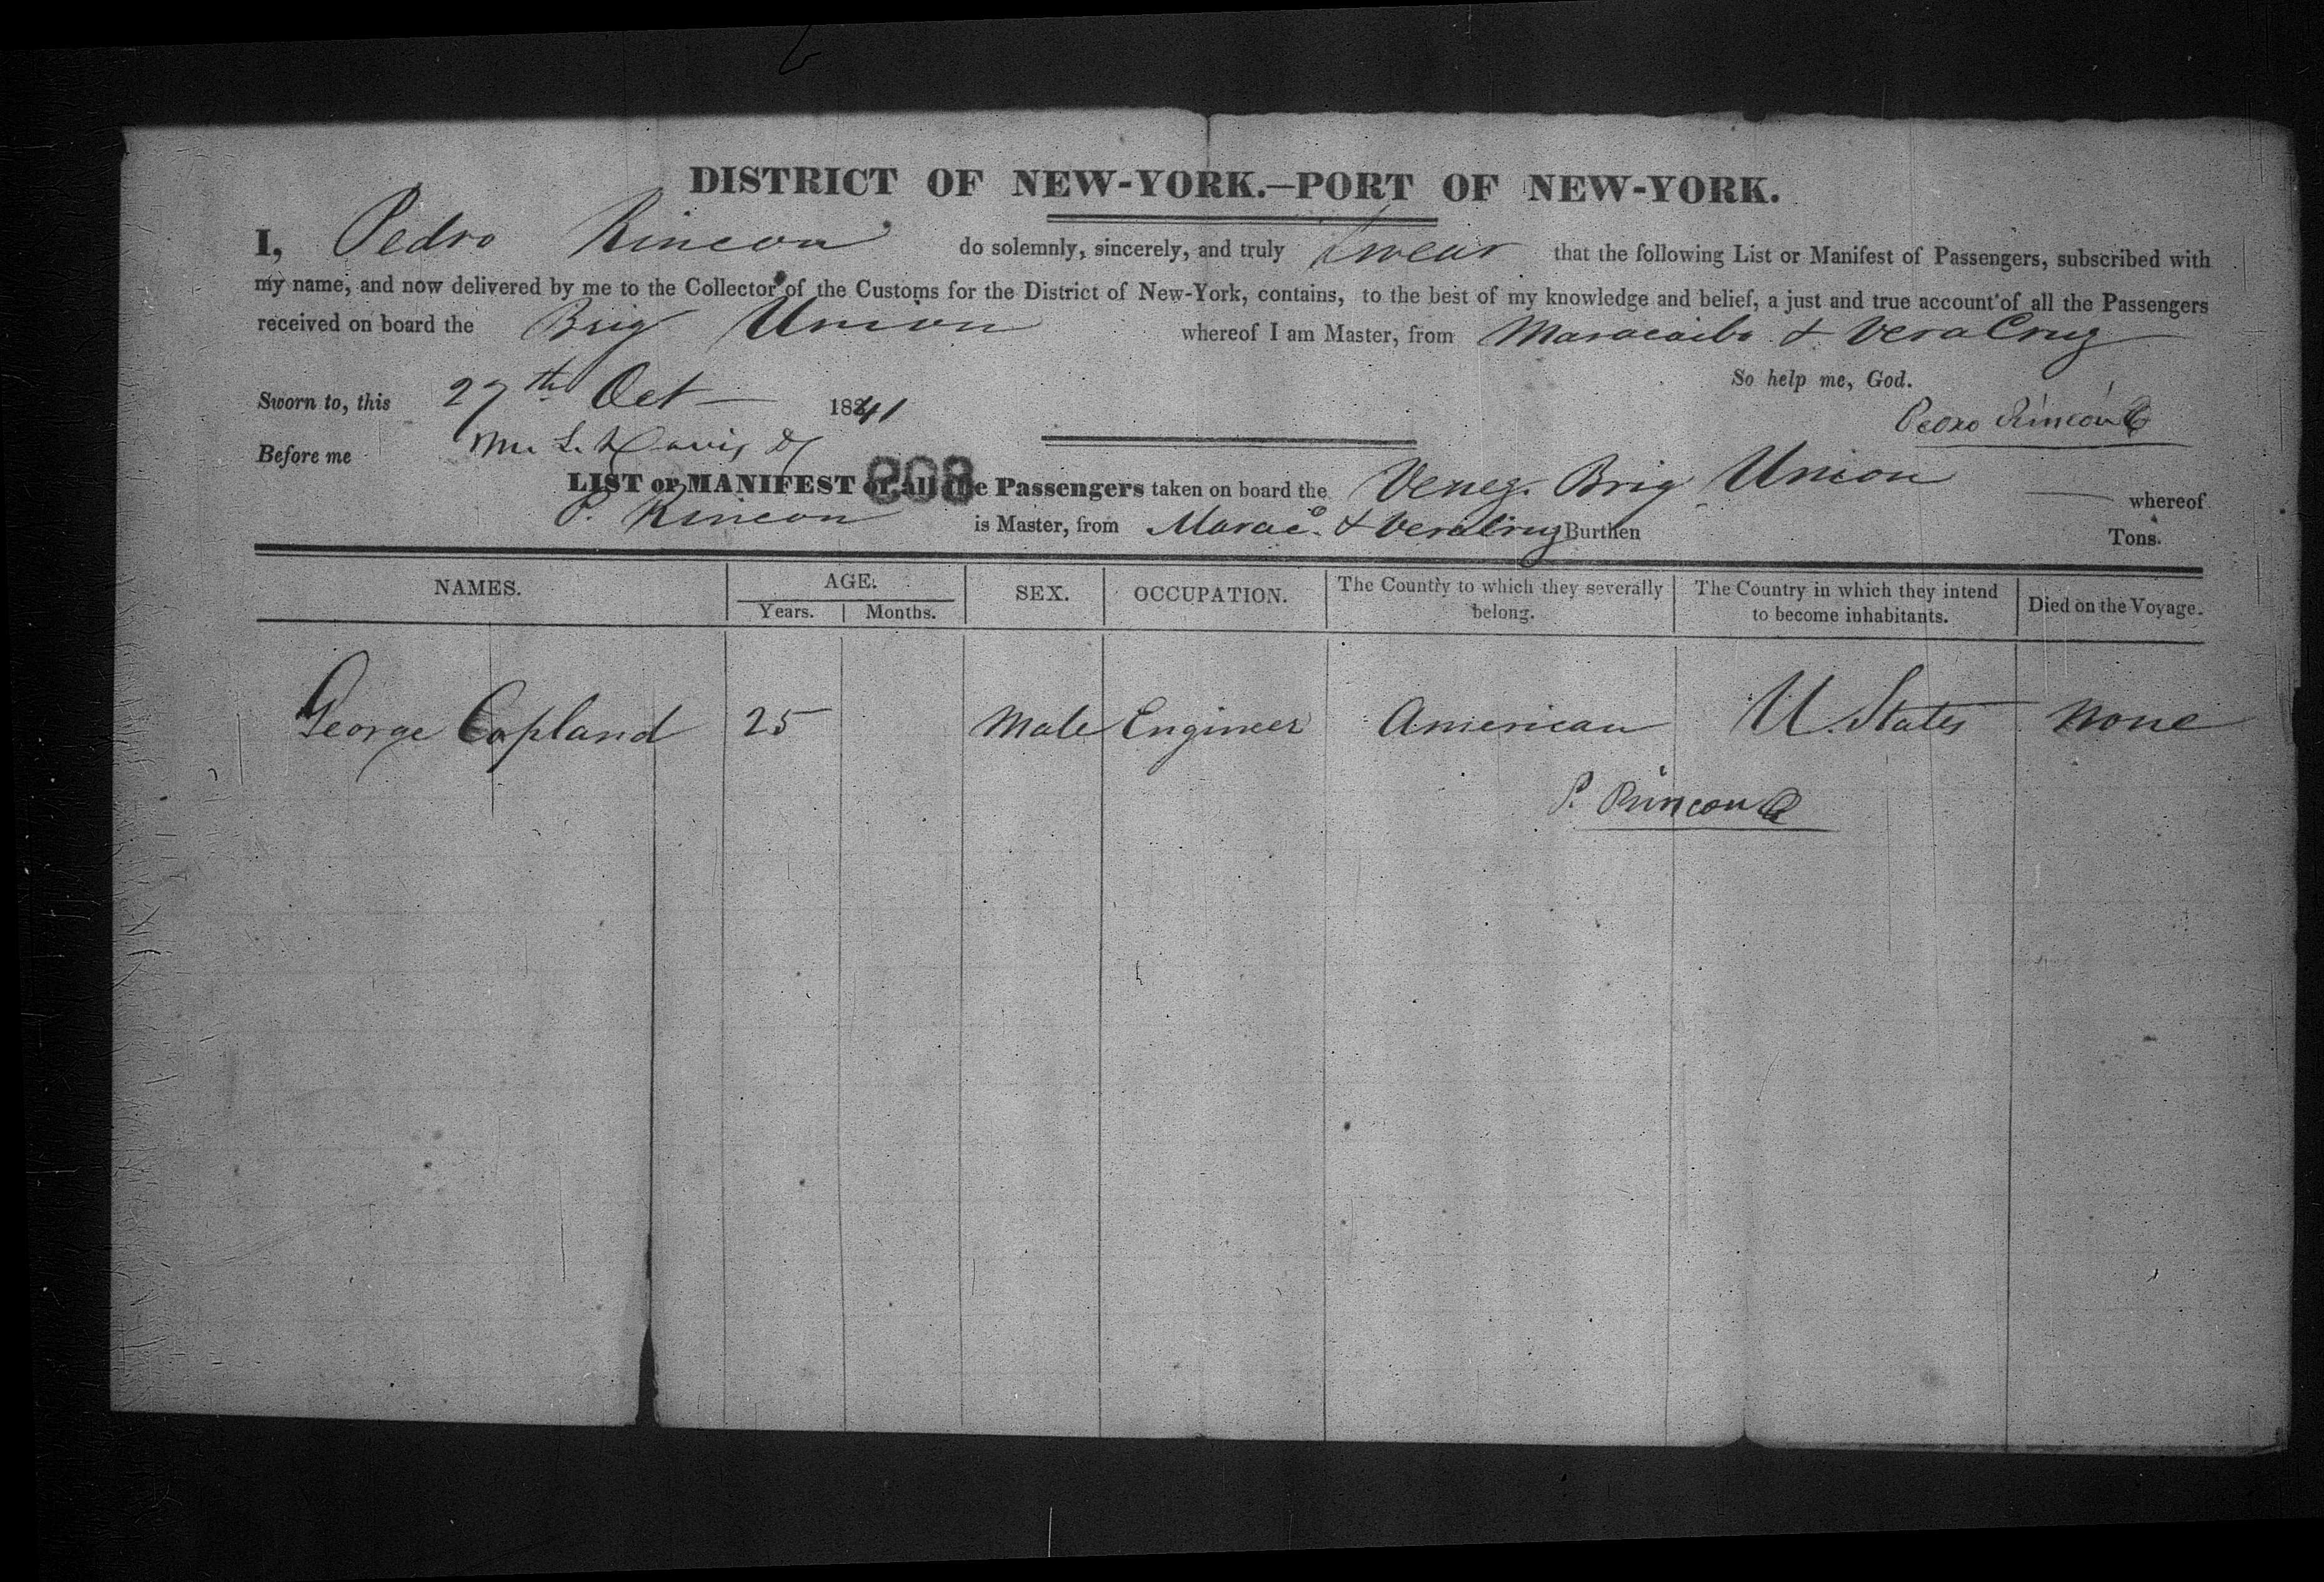 DISTRICT OF NEW-YORK.—PORT OF NEW-YORK.
I, Pedro Rincon do solemnly, sincerely, and truly swear that the following List or Manifest of Passengers, subscribed with
my name, and now delivered by me to the Collector of the Customs for the District of New-York, contains, to the best of my knowledge and belief, a just and true account of all the Passengers
received on board the Brig Union whereof I am Master, from Maracaibo & Vera Cruz
So help me, God.
Sworn to, this 27th Oct 1841
Pedro Rincon
Before me L. Davis
808
LIST or MANIFEST of all the Passengers taken on board the Venez. Brig Union whereof
P. Rincon is Master, from Marac.o & Vera Cruz Burthen Tons.
NAMES. AGE. SEX. OCCUPATION. The Country to which they severally belong. The Country in which they intend to become inhabitants. Died on the Voyage.
Years. Months.
George Copland 25 Male Engineer American U. States None
P. Rincon